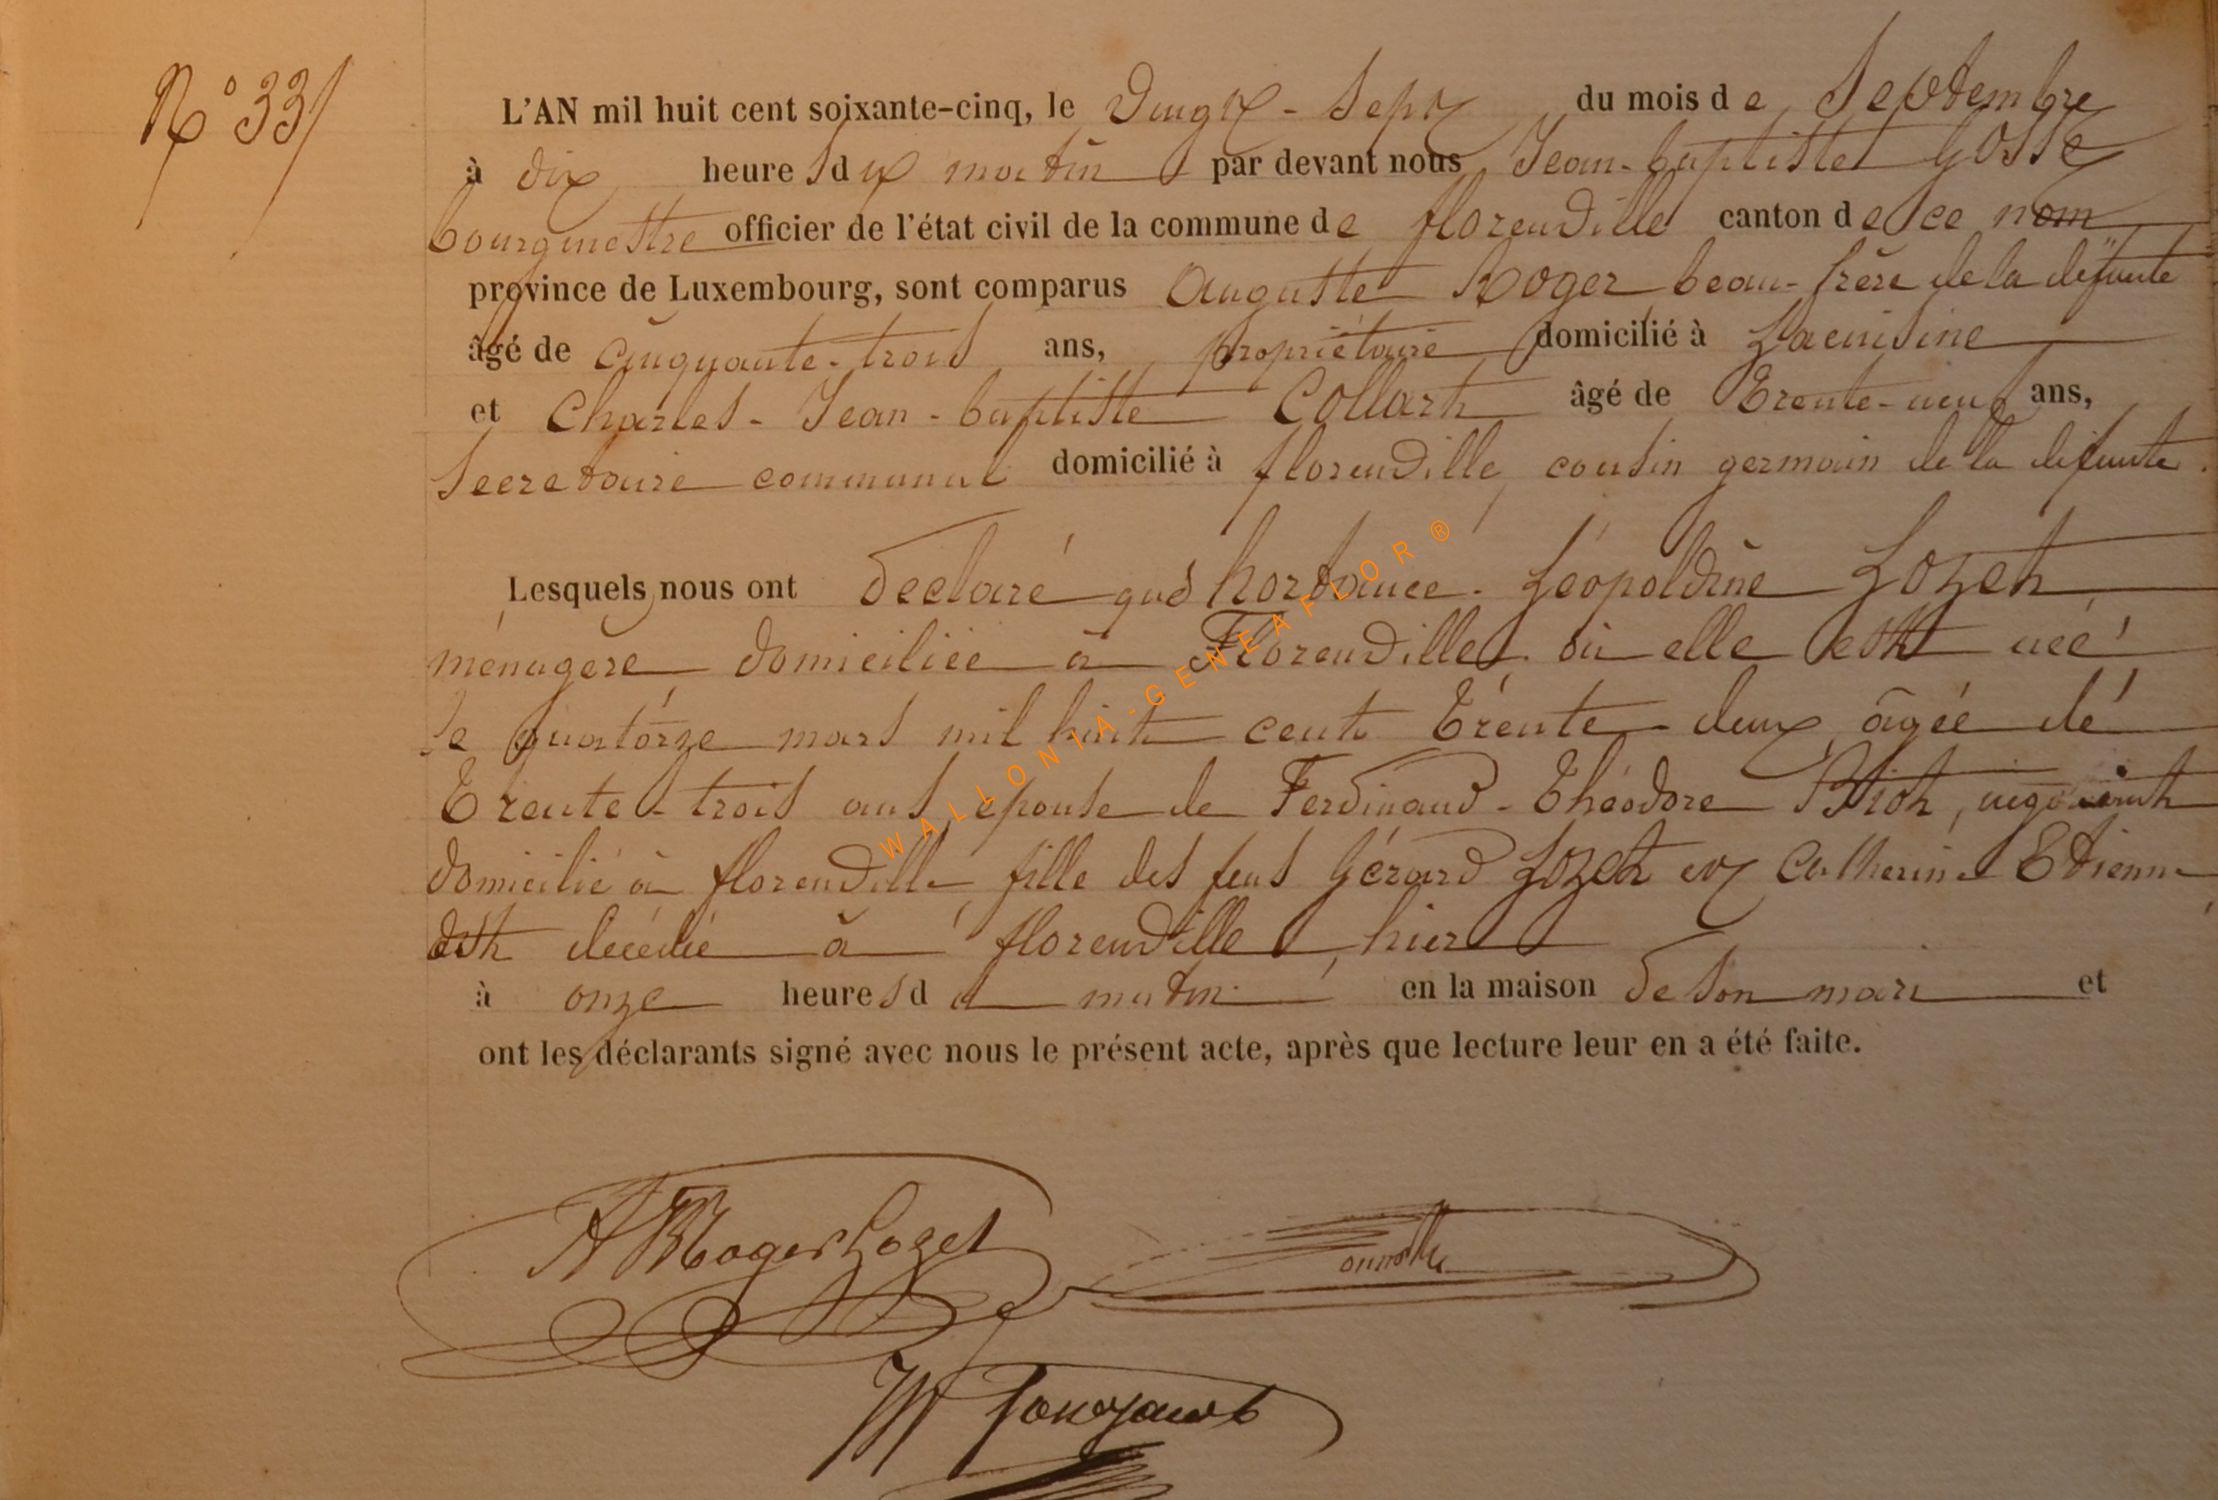 N° 33
L'AN mil huit cent soixante-cinq, le Vingt-Sept du mois de Septembre
à dix heures du matin par devant nous Jean-baptiste Gosse
bourgmestre officier de l'état civil de la commune de florenville canton de ce nom
province de Luxembourg, sont comparus Auguste Roger beau-frère de la défunte
âgé de cinquante-trois ans, propriétaire domicilié à Lacuisine
et Charles-Jean-baptiste Collart âgé de Trente-neuf ans,
Secretaire communal domicilié à florenville, cousin germain de la défunte.
Lesquels nous ont déclaré que hortance-Léopoldine Lozet
ménagère domiciliée à Florenville, où elle est née
le quatorze mars mil huit cent Trente-deux, âgée de
Trente-trois ans, épouse de Ferdinand-Théodore Piot, négociant
domicilié à florenville, fille des feus Gérard Lozet et Catherine Etienne
est décédée à florenville, hier
à onze heures du matin en la maison de son mari et
ont les déclarants signé avec nous le présent acte, après que lecture leur en a été faite.
A Roger Lozet
WALLONIA-GENEAFLOR®